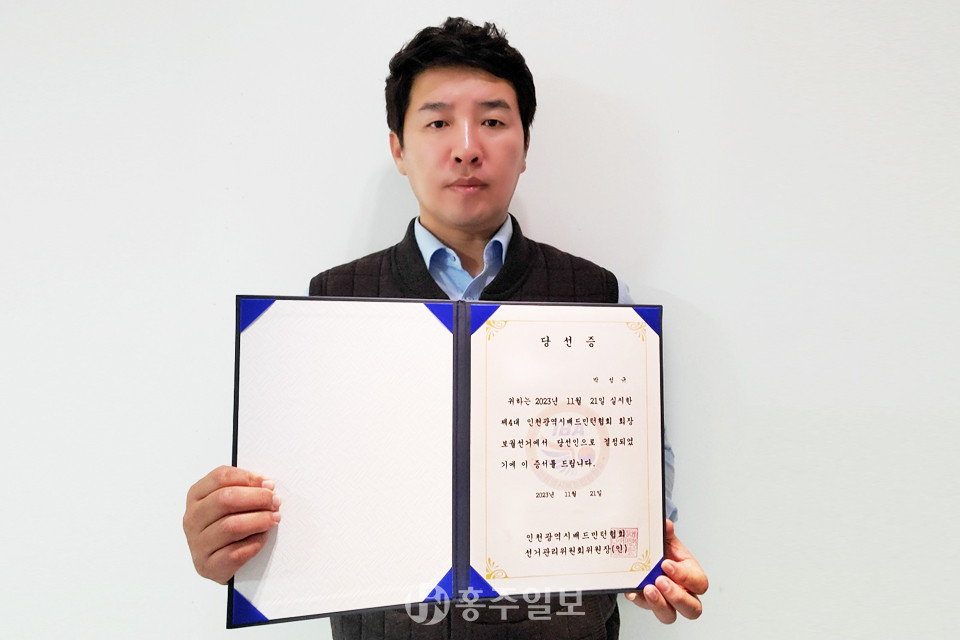 당 선 증
박 성 규
귀하는 2023년 11월 21일 실시한
제4대 인천광역시배드민턴협회 회장
보궐선거에서 당선인으로 결정되었
기에 이 증서를 드립니다.
IBA
2023년 11월 21일
인천광역시배드민턴협회
선거관리위원회위원장(인)
홍주일보